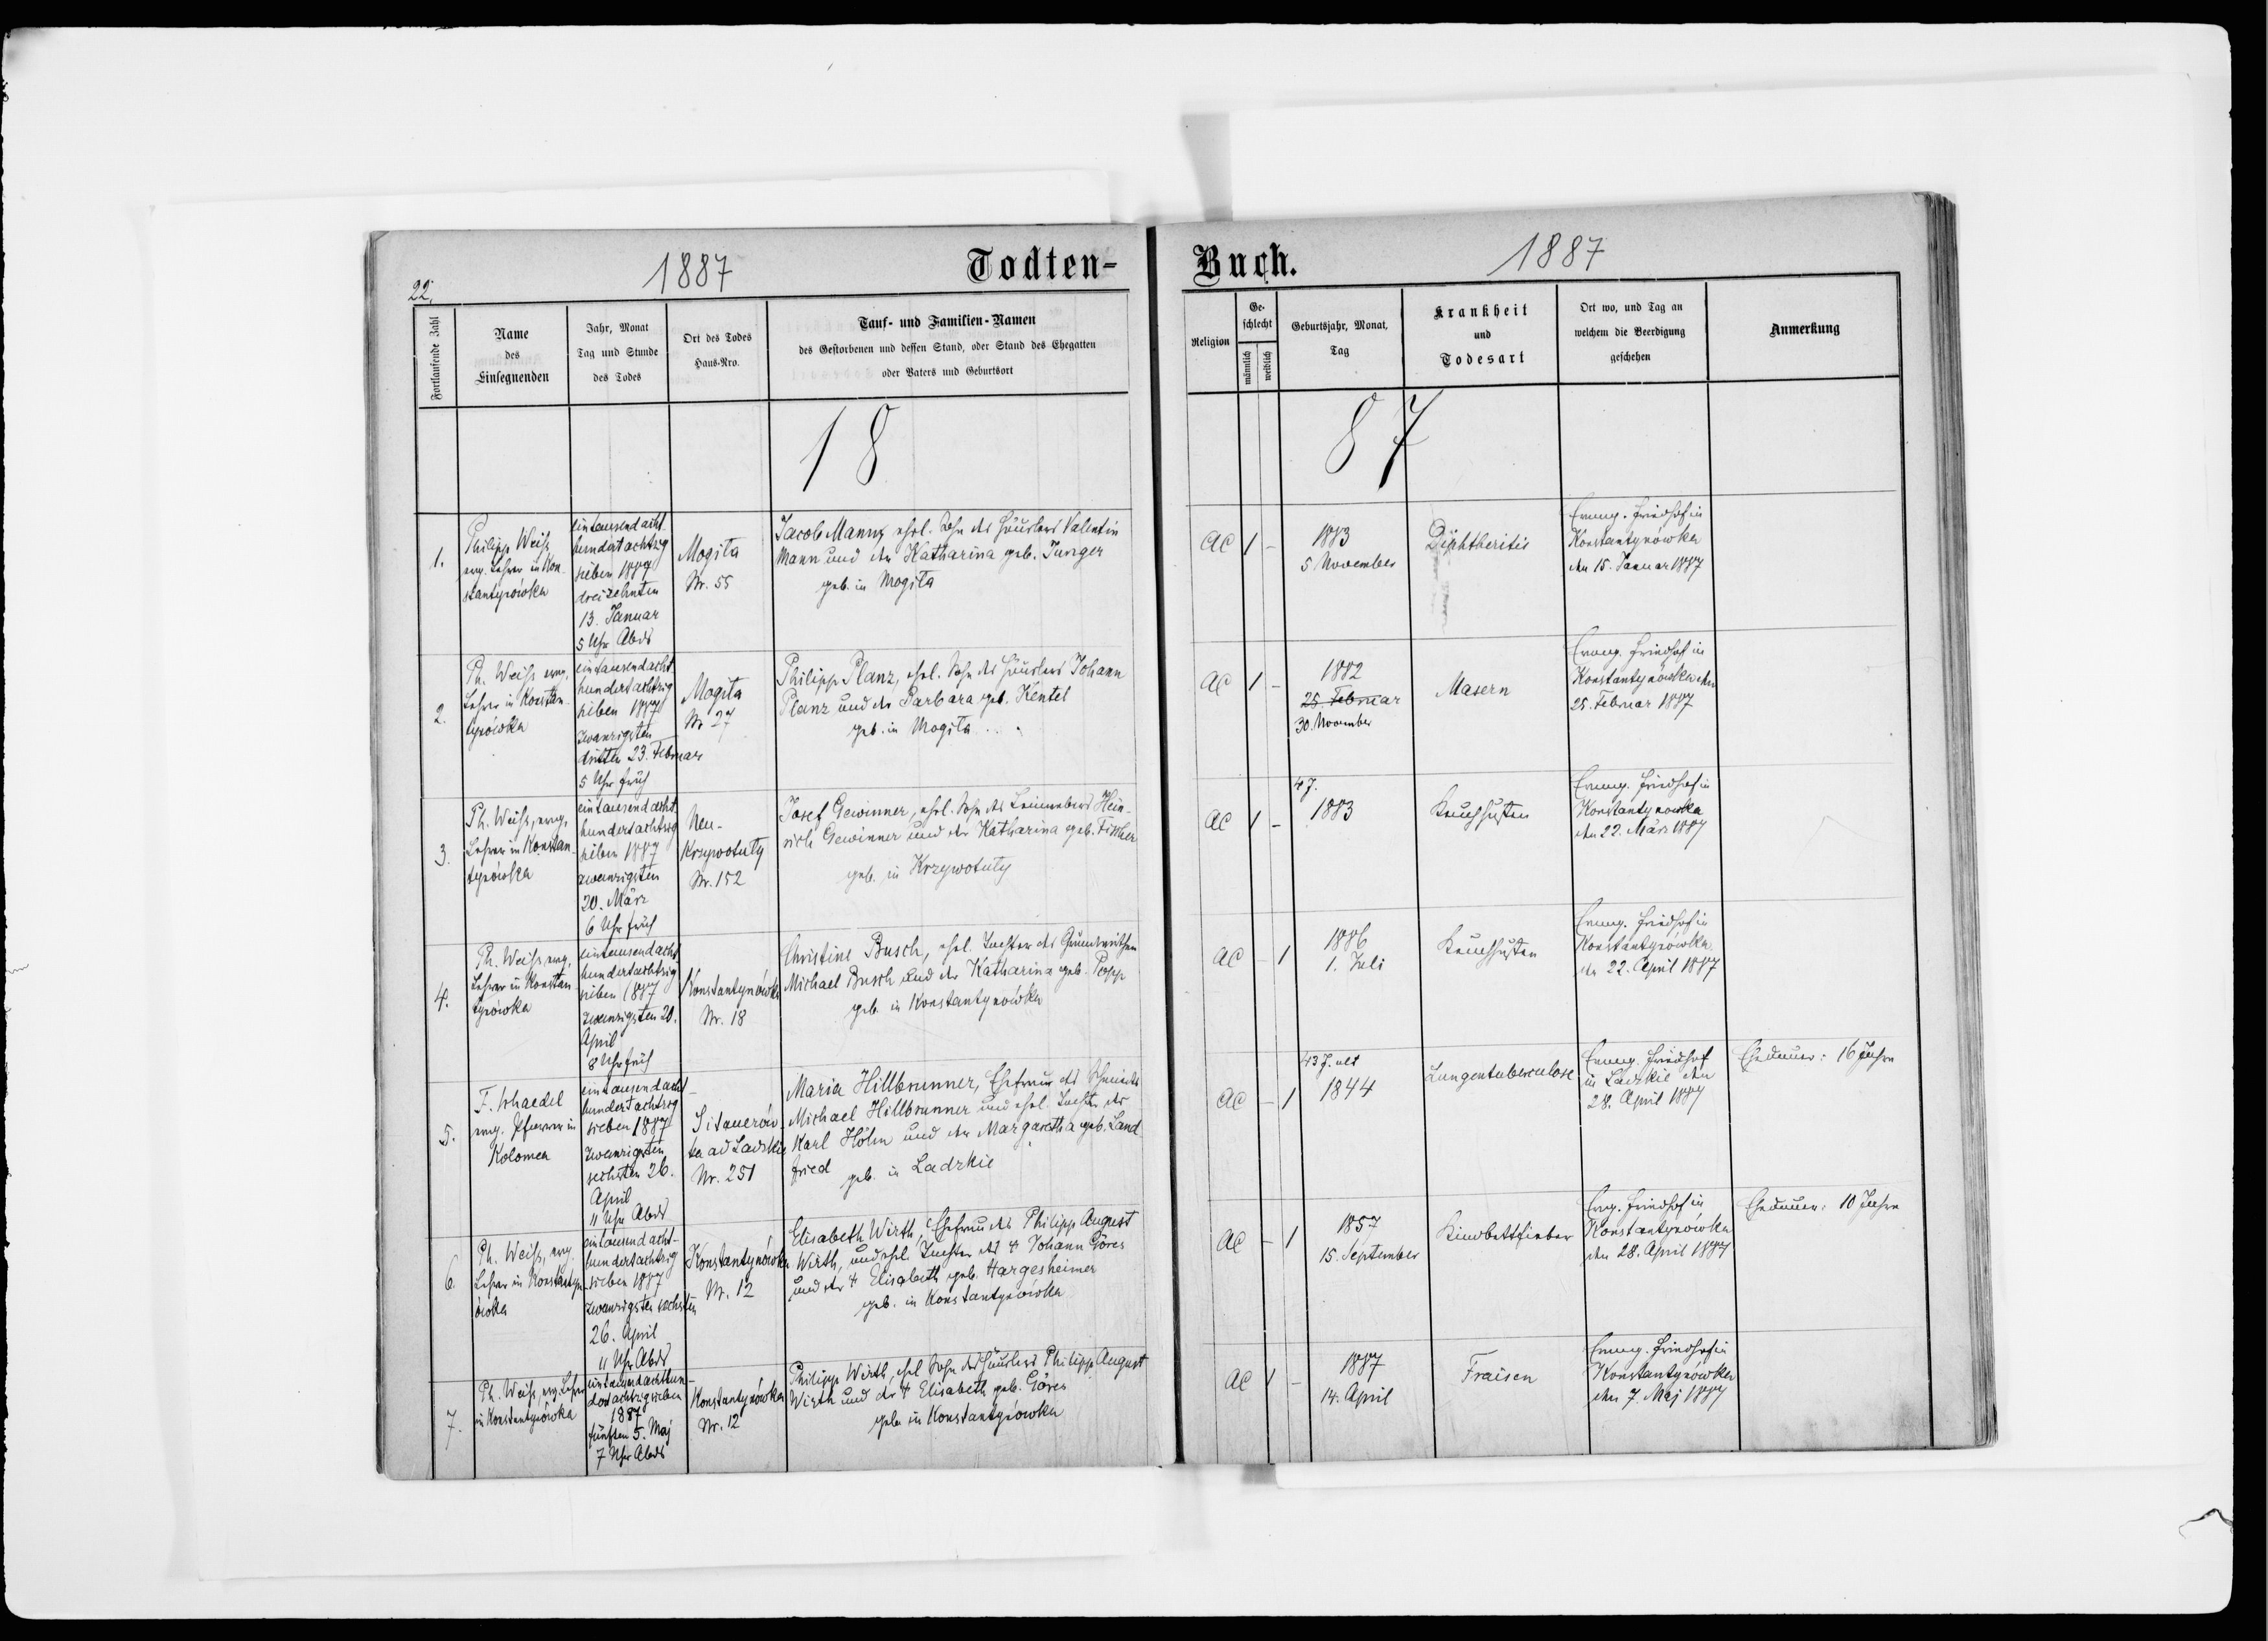 22.
1887
Todten-
Fortlaufende Zahl
Name
des
Einsegnenden
Jahr, Monat
Tag und Stunde
des Todes
Ort des Todes
Haus-Nro.
Tauf- und Familien-Namen
des Gestorbenen und dessen Stand, oder Stand des Ehegatten
oder Vaters und Geburtsort
18
1.
Philipp Weiß
evg. Lehrer in Kon-
stantynówka
eintausendacht-
hundertachtzig
sieben 1887
dreizehnten
13. Januar
5 Uhr Abds
Mogila
Nr. 55
Jacob Mann, ehel. Sohn des Häuslers Valentin
Mann und der Katharina geb. Junger
geb. in Mogila
2.
Ph. Weiß evg.
Lehrer in Konstan-
tynówka
eintausendacht
hundertachtzig
sieben 1887
zwanzigsten
dritten 23. Februar
5 Uhr früh
Mogila
Nr. 27
Philipp Planz, ehel. Sohn des Häuslers Johann
Planz und der Barbara geb. Kentel
geb. in Mogila
3.
Ph. Weiß, evg.
Lehrer in Konstan-
tynówka
eintausendacht
hundertachtzig
sieben 1887
zwanzigsten
20. März
6 Uhr früh
Neu-
Krzywotuly
Nr. 152
Josef Gewinner, ehel. Sohn des Leinwebers Hein-
rich Gewinner und der Katharina geb. Fischer
geb. in Krzywotuly
4.
Ph. Weiß, evg.
Lehrer in Konstan-
tynówka
eintausendacht-
hundertachtzig
sieben 1887
zwanzigsten 20.
April
8 Uhr früh
Konstantynówka
Nr. 18
Christine Busch, ehel. Tochter des Grundwirthen
Michael Busch und der Katharina geb. Popp
geb. in Konstantynówka
5.
F. Schaedel
evg. Pfarrer in
Kolomea
eintausendacht
hundertachtzig
sieben 1887
zwanzigsten
sechsten 26.
April
11 Uhr Abds
Sitauerów-
ka ad Ladzkie
Nr. 251
Maria Hillbrunner, Ehefrau des Schmieds
Michael Hillbrunner und ehel. Tochter des
Karl Höhn und der Margaretha geb. Land-
fried geb. in Ladzkie
6.
Ph. Weiß, evg.
Lehrer in Konstantyn-
ówka
eintausendacht-
hundertachtzig
sieben 1887
zwanzigsten sechsten
26. April
11 Uhr Abds
Konstantynówka
Nr. 12
Elisabeth Wirth, Ehefrau des Philipp August
Wirth, und ehel. Tochter des † Johann Göres
und der † Elisabeth geb. Hargesheimer
geb. in Konstantynówka
7.
Ph. Weiß, evg. Lehrer
in Konstantynówka
eintausendachthun-
dertachtzigsieben
1887
fünften 5. Maj
7 Uhr Abds
Konstantynówka
Nr. 12
Philipp Wirth, ehel Sohn des Häuslers Philipp August
Wirth und der † Elisabeth geb. Göres
geb. in Konstantynówka
Buch.
1887
Religion
Ge-
schlecht
männlich
weiblich
Geburtsjahr, Monat,
Tag
Krankheit
und
Todesart
Ort wo, und Tag an
welchem die Beerdigung
geschehen
Anmerkung
87
AC 1 -
1883
5 November
Diphtheritis
Evang. Friedhof in
Konstantynówka
den 15. Januar 1887
AC 1 -
1882
25. Februar
30. November
Masern
Evang. Friedhof in
Konstantynówka den
25. Februar 1887
AC 1 -
4 J.
1883
Keuchhusten
Evang. Friedhof in
Konstantynowka
den 22. März 1887
AC - 1
1886
1. Juli
Keuchhusten
Evang. Friedhof in
Konstantynówka
den 22. April 1887
AC - 1
43 J. alt
1844
Lungentuberculose
Evang. Friedhof
in Ladzkie den
28. April 1887
Ehedauer: 16 Jahre
AC - 1
1857
15. September
Kindbettfieber
Evg. Friedhof in
Konstantynówka
den 28. April 1887
Ehedauer: 10 Jahre
AC 1 -
1887
14. April
Fraisen
Evang. Friedhof in
Konstantynówka
den 7. Maj 1887